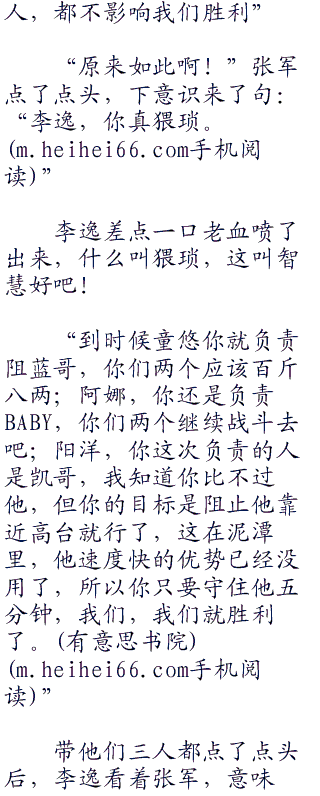 人，都不影响我们胜利”
“原来如此啊！”张军
点了点头，下意识来了句：
“李逸，你真猥琐。
(m.heihei66.com手机阅
读)”
李逸差点一口老血喷了
出来，什么叫猥琐，这叫智
慧好吧！
“到时候童悠你就负责
阻蓝哥，你们两个应该百斤
八两；阿娜，你还是负责
BABY，你们两个继续战斗去
吧；阳洋，你这次负责的人
是凯哥，我知道你比不过
他，但你的目标是阻止他靠
近高台就行了，这在泥潭
里，他速度快的优势已经没
用了，所以你只要守住他五
分钟，我们，我们就胜利
了。(有意思书院)
(m.heihei66.com手机阅
读)”
带他们三人都点了点头
后，李逸看着张军，意味